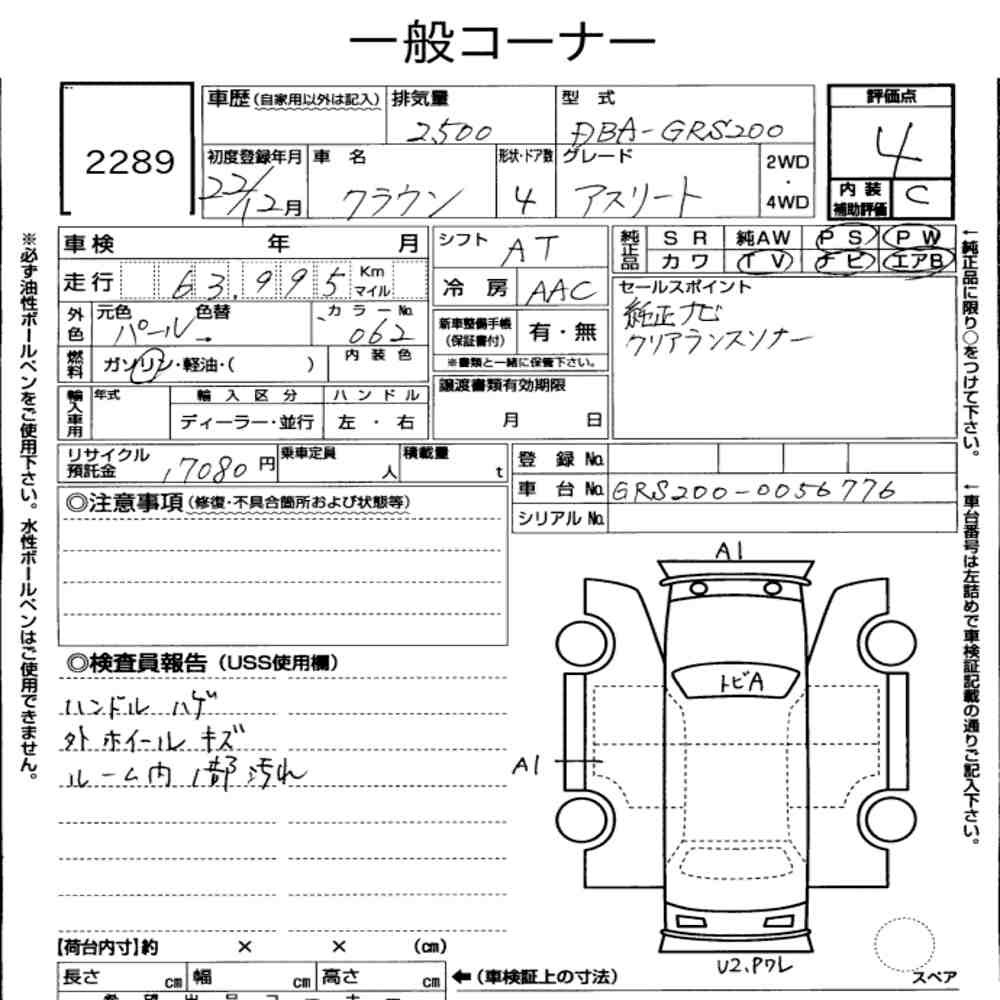 一般コーナー
2289
車歴(自家用以外は記入) 排気量 型式 評価点
2,500 DBA-GRS200 4
初度登録年月 車名 形状・ドア数 グレード 2WD・4WD
22/12月 クラウン 4 アスリート
内装補助評価 C
車検 年 月
シフト AT
純正品 SR 純AW PS PW
カワ TV ナビ エアB
走行 63,995 Km マイル
冷房 AAC
セールスポイント
純正ナビ
クリアランスソナー
外色 元色 パール 色替 カラーNo. 062
新車整備手帳(保証書付) 有・無
※書類と一緒に保管下さい。
燃料 ガソリン・軽油・( ) 内装色
譲渡書類有効期限
月 日
輸入車用 年式 輸入区分 ハンドル
ディーラー・並行 左・右
リサイクル預託金 17080円 乗車定員 人 積載量 t
登録No.
車台No. GRS200-0056776
シリアルNo.
◎注意事項(修復・不具合箇所および状態等)
◎検査員報告(USS使用欄)
ハンドル ハゲ
外 ホイール キズ
ルーム内 1部 汚れ
A1
トビA
A1
U2、PワL
スペア
【荷台内寸】約 × × (cm)
長さ cm 幅 cm 高さ cm ←(車検証上の寸法)
※必ず油性ボールペンをご使用下さい。水性ボールペンはご使用できません。
←純正品に限り○をつけて下さい。
←車台番号は左詰めで車検証記載の通りご記入下さい。